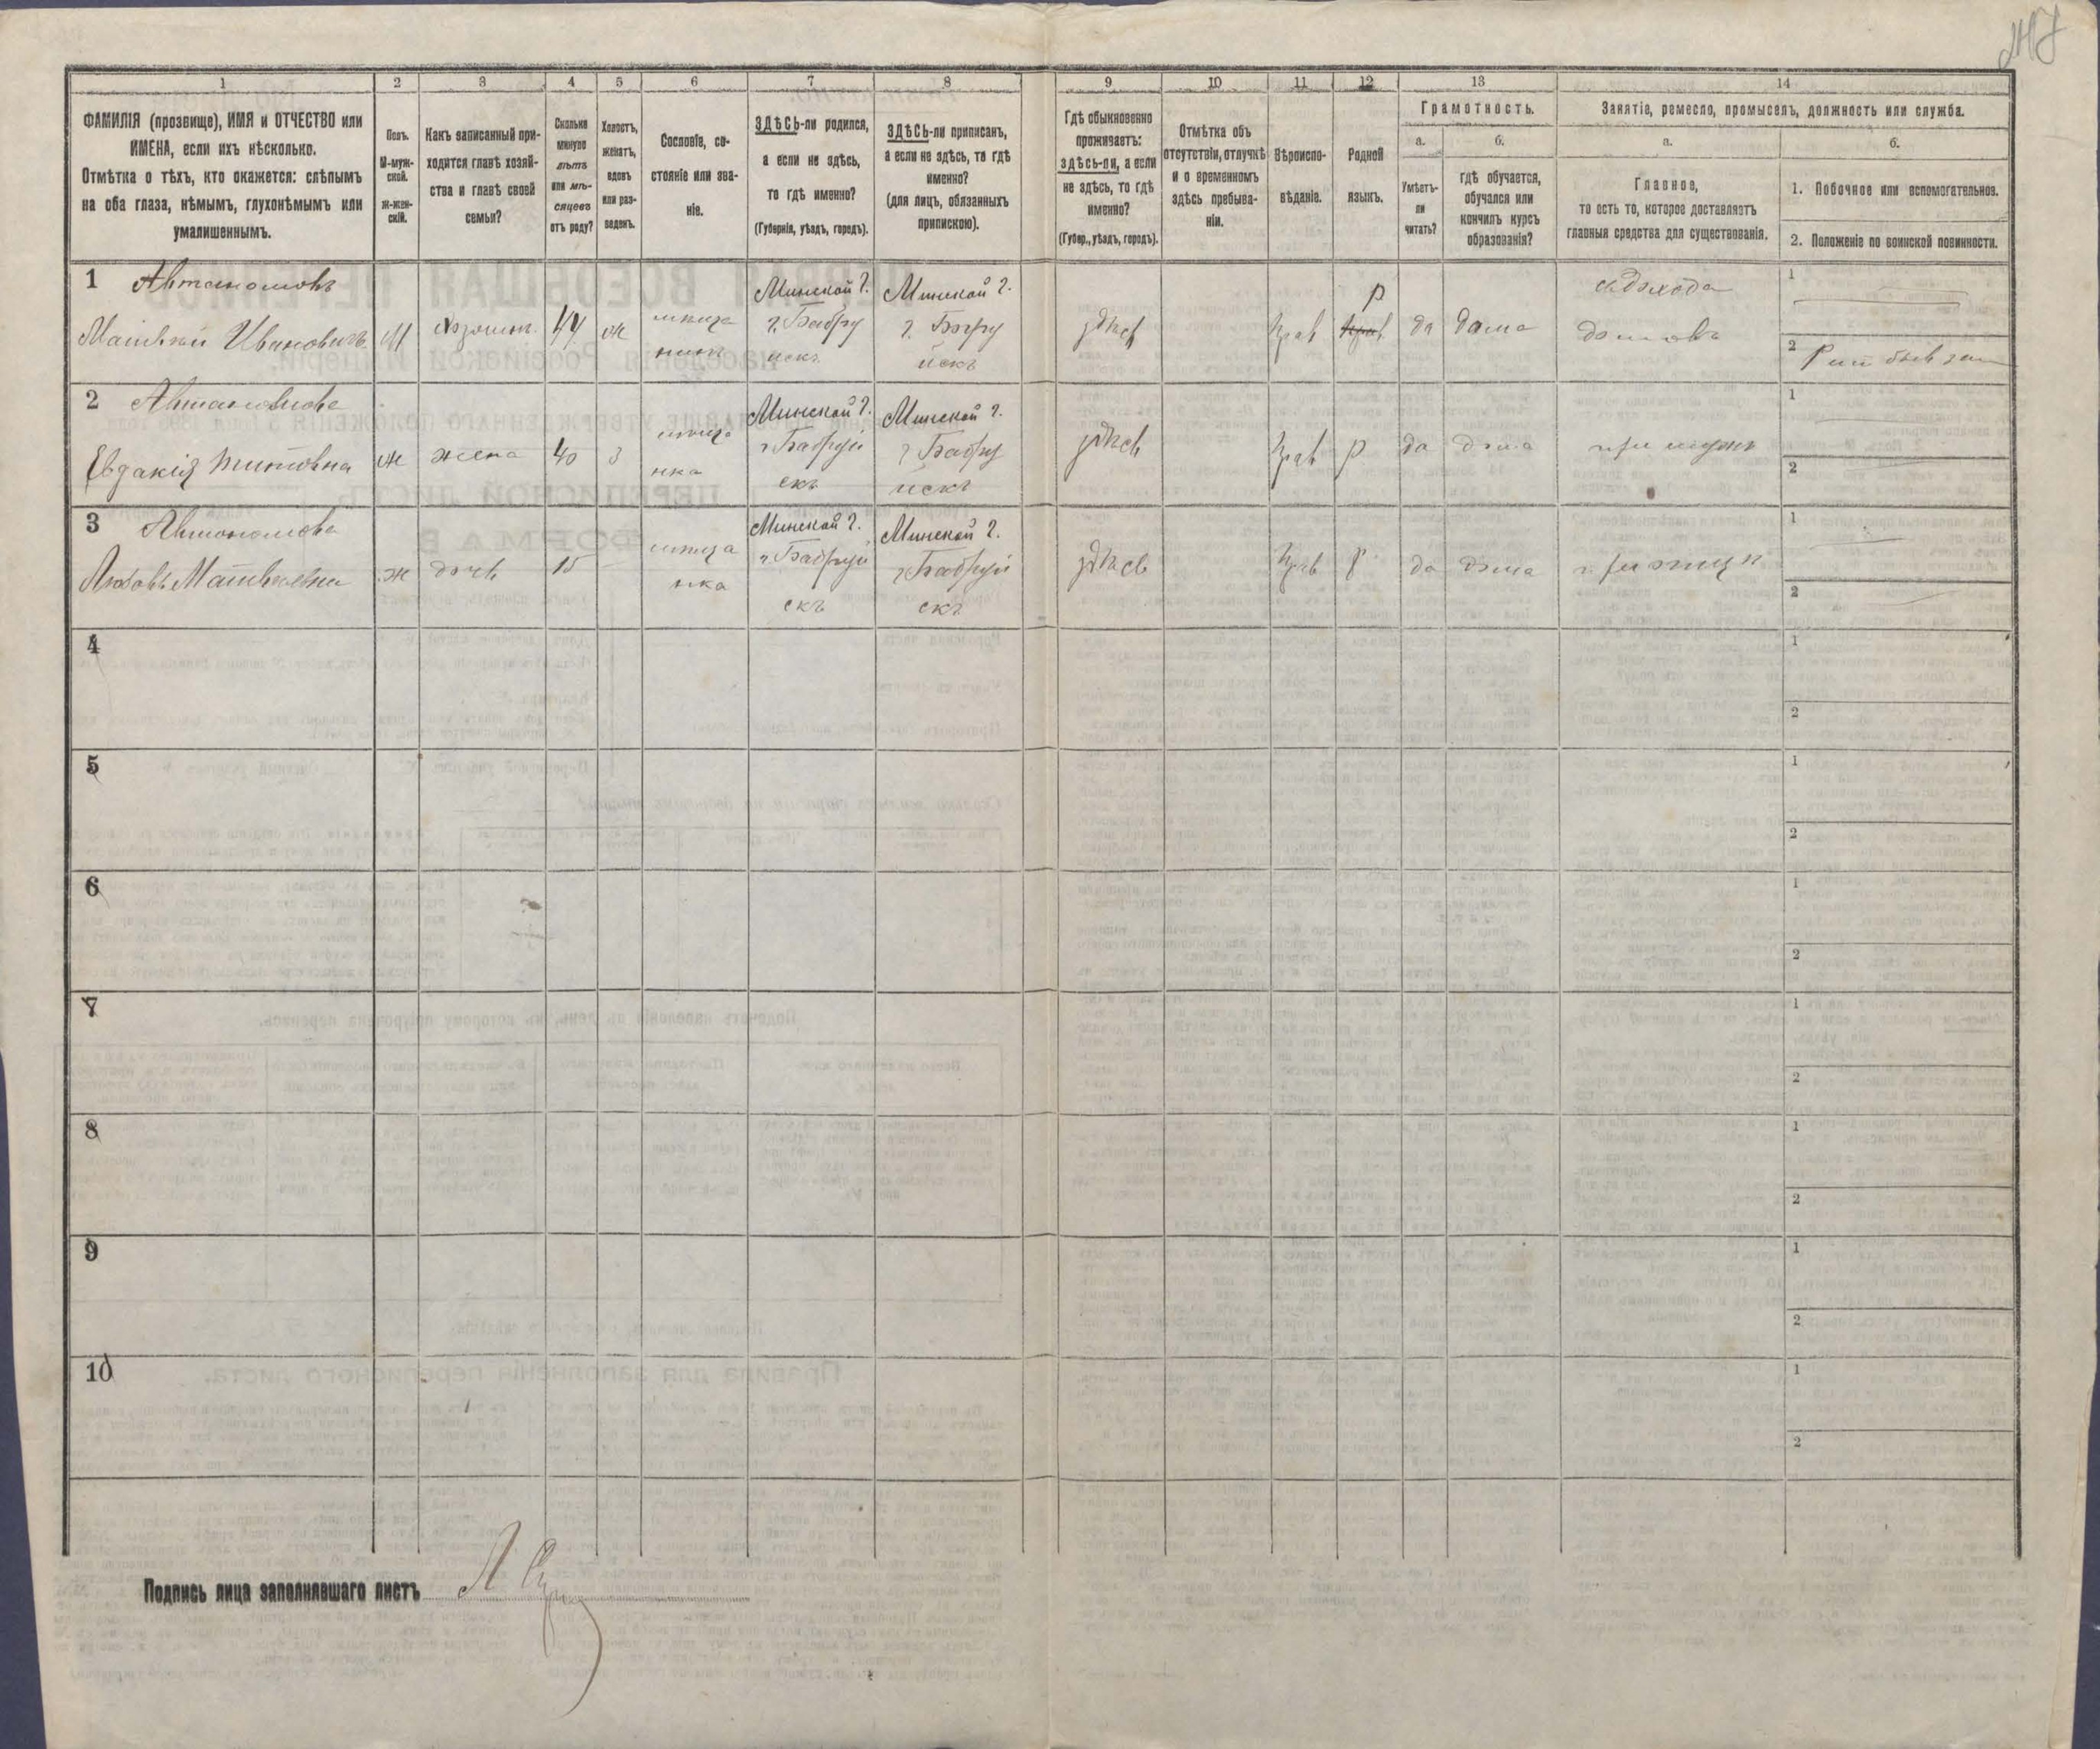 1 2 3 4 5 6 7 8 9 10 11 12 13 14
ФАМИЛІЯ (прозвище), ИМЯ и ОТЧЕСТВО или
ИМЕНА, если ихъ нѣсколько.
Отмѣтка о тѣхъ, кто окажется: слѣпымъ
на оба глаза, нѣмымъ, глухонѣмымъ или
умалишеннымъ.
Полъ.
М-муж-
ской.
ж-жен-
скій.
Какъ записанный при-
ходится главѣ хозяй-
ства и главѣ своей
семьи?
Сколько
минуло
лѣтъ
или мѣ-
сяцевъ
отъ роду?
Холостъ,
женатъ,
вдовъ
или раз-
веденъ.
Сословіе, со-
стояніе или зва-
ніе.
ЗДѢСЬ-ли родился,
а если не здѣсь,
то гдѣ именно?
(Губернія, уѣздъ, городъ).
ЗДѢСЬ-ли приписанъ,
а если не здѣсь, то гдѣ
именно?
(для лицъ, обязанныхъ
припискою).
Гдѣ обыкновенно
проживаетъ:
здѣсь-ли, а если
не здѣсь, то гдѣ
именно?
(Губер., уѣздъ, городъ).
Отмѣтка объ
отсутствіи, отлучкѣ
и о временномъ
здѣсь пребыва-
ніи.
Вѣроиспо-
вѣданіе.
Родной
языкъ.
Грамотность.
а.
Умѣетъ-
ли
читать?
б.
гдѣ обучается,
обучался или
кончилъ курсъ
образованія?
Занятіе, ремесло, промыселъ, должность или служба.
а.
Главное,
то есть то, которое доставляетъ
главныя средства для существованія.
б.
1. Побочное или вспомогательное.
2. Положеніе по воинской повинности.
1 Автономовъ
Матвѣй Ивановичъ М хозяинъ 44 ж
мѣща
нинъ
Минской г.
г. Бобру
йскъ
Минской г.
г. Бобру
йскъ
здѣсь Прав Р да дома
съ дохода
домовъ
1
2
2 Автономова
Евдакія Титовна ж жена 40 З
мѣща
нка
Минской г.
г Бабруй
скъ
Минской г.
г Бабру
йскъ
здѣсь Прав Р да дома при мужѣ
1
2
3 Автономова
Любовь Матвѣевна ж дочь 15 -
мѣща
нка
Минской г.
г. Бабруй
скъ
Минской г.
г Бабруй
скъ
здѣсь Прав Р да дома при отцѣ
1
2
4 1
2
5 1
2
6 1
2
7 1
2
8 1
2
9 1
2
10 1
2
Подпись лица заполнявшаго листъ